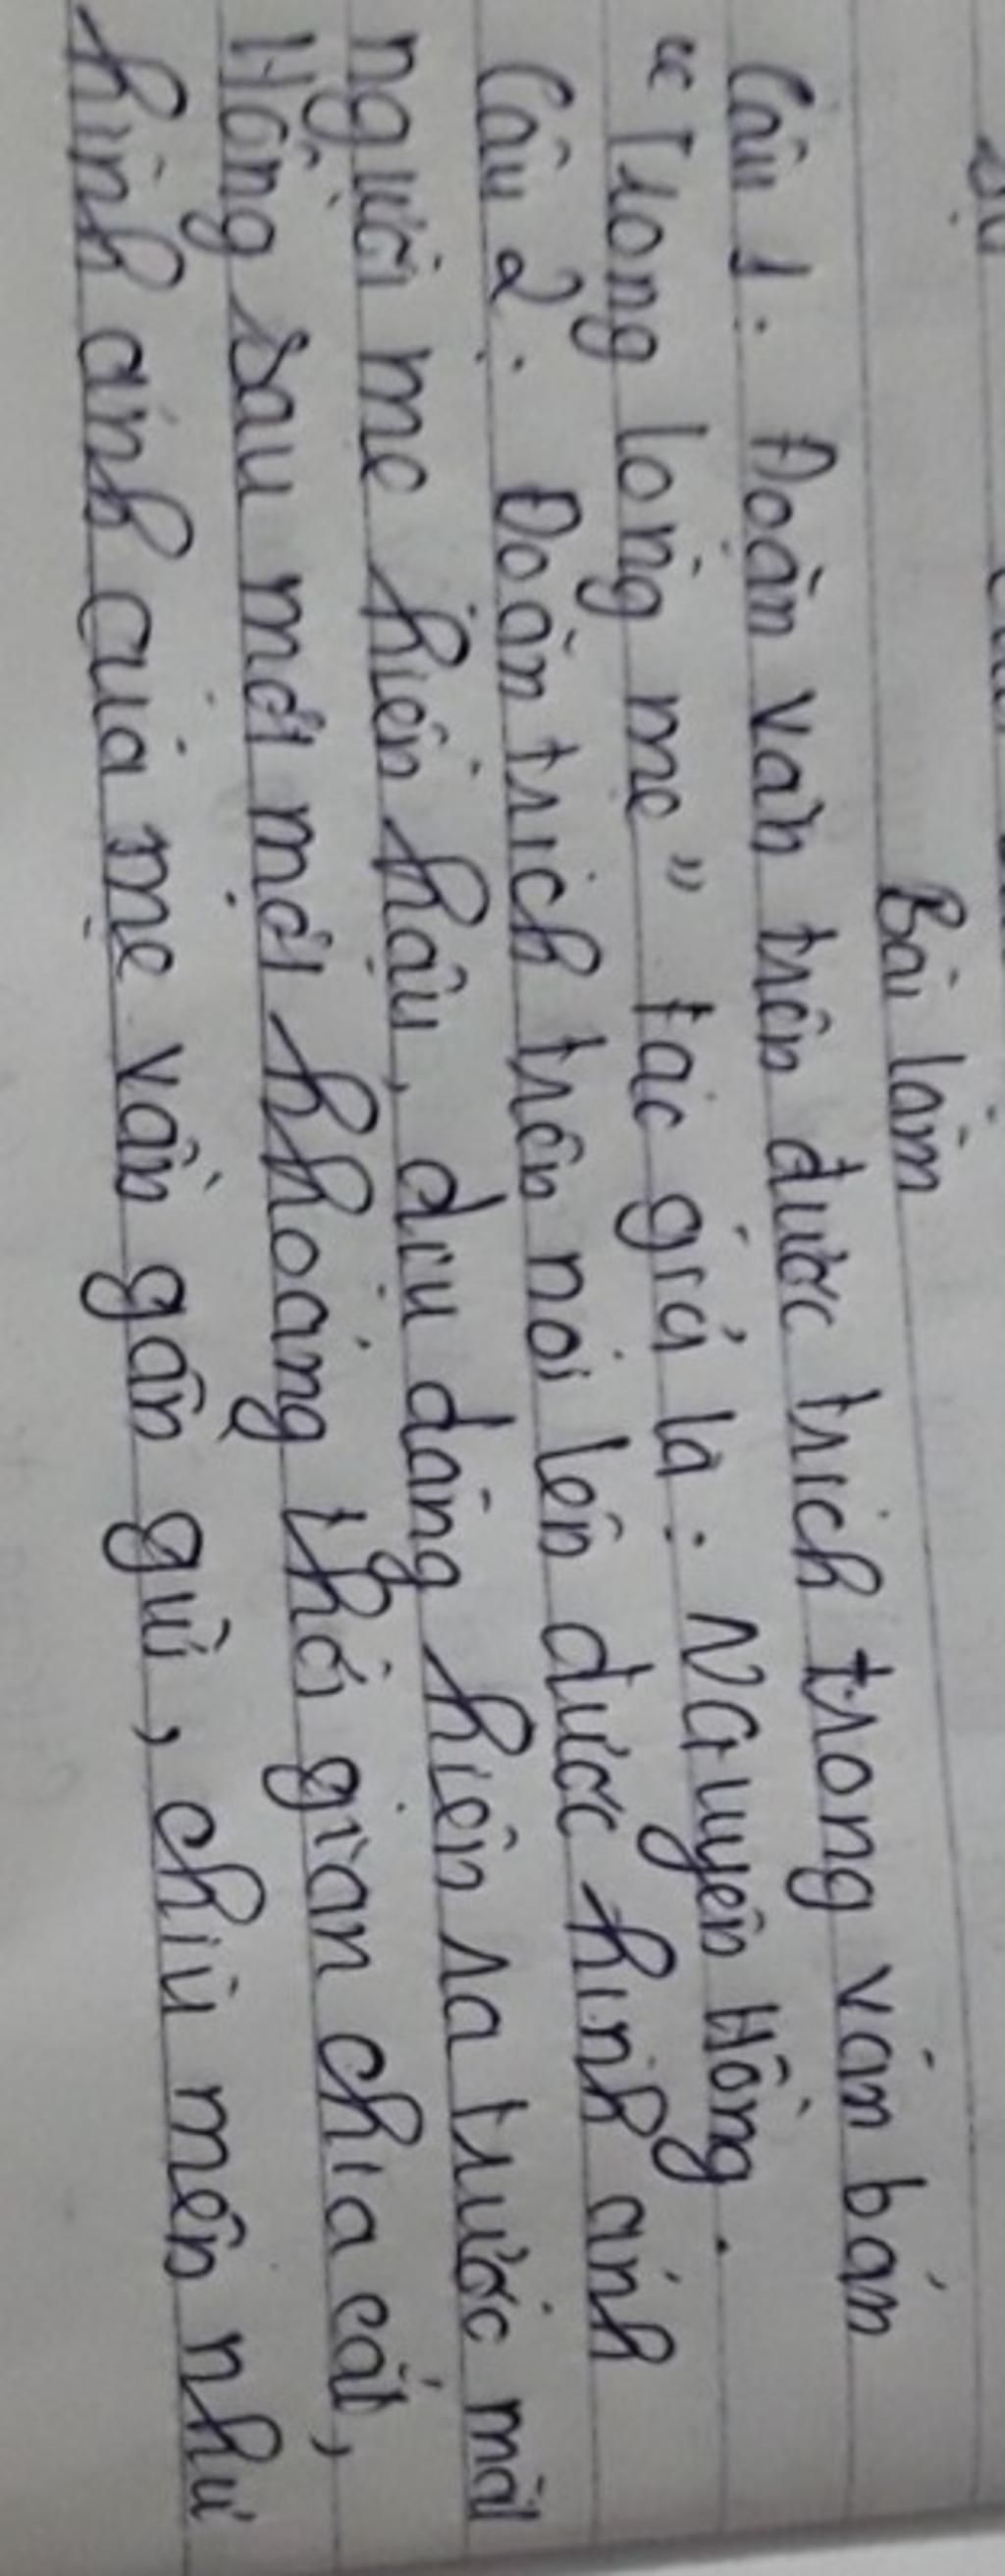 Bài làm
Câu 1: Đoạn văn trên được trích trong văn bản
"Trong lòng mẹ" tác giả là: Nguyên Hồng.
Câu 2: Đoạn trích trên nói lên được hình ảnh
người mẹ hiền hậu, dịu dàng hiện ra trước mắt
Hồng sau một một khoảng thời gian chia cắt,
hình ảnh của mẹ vẫn gần gũi, chịu mến như